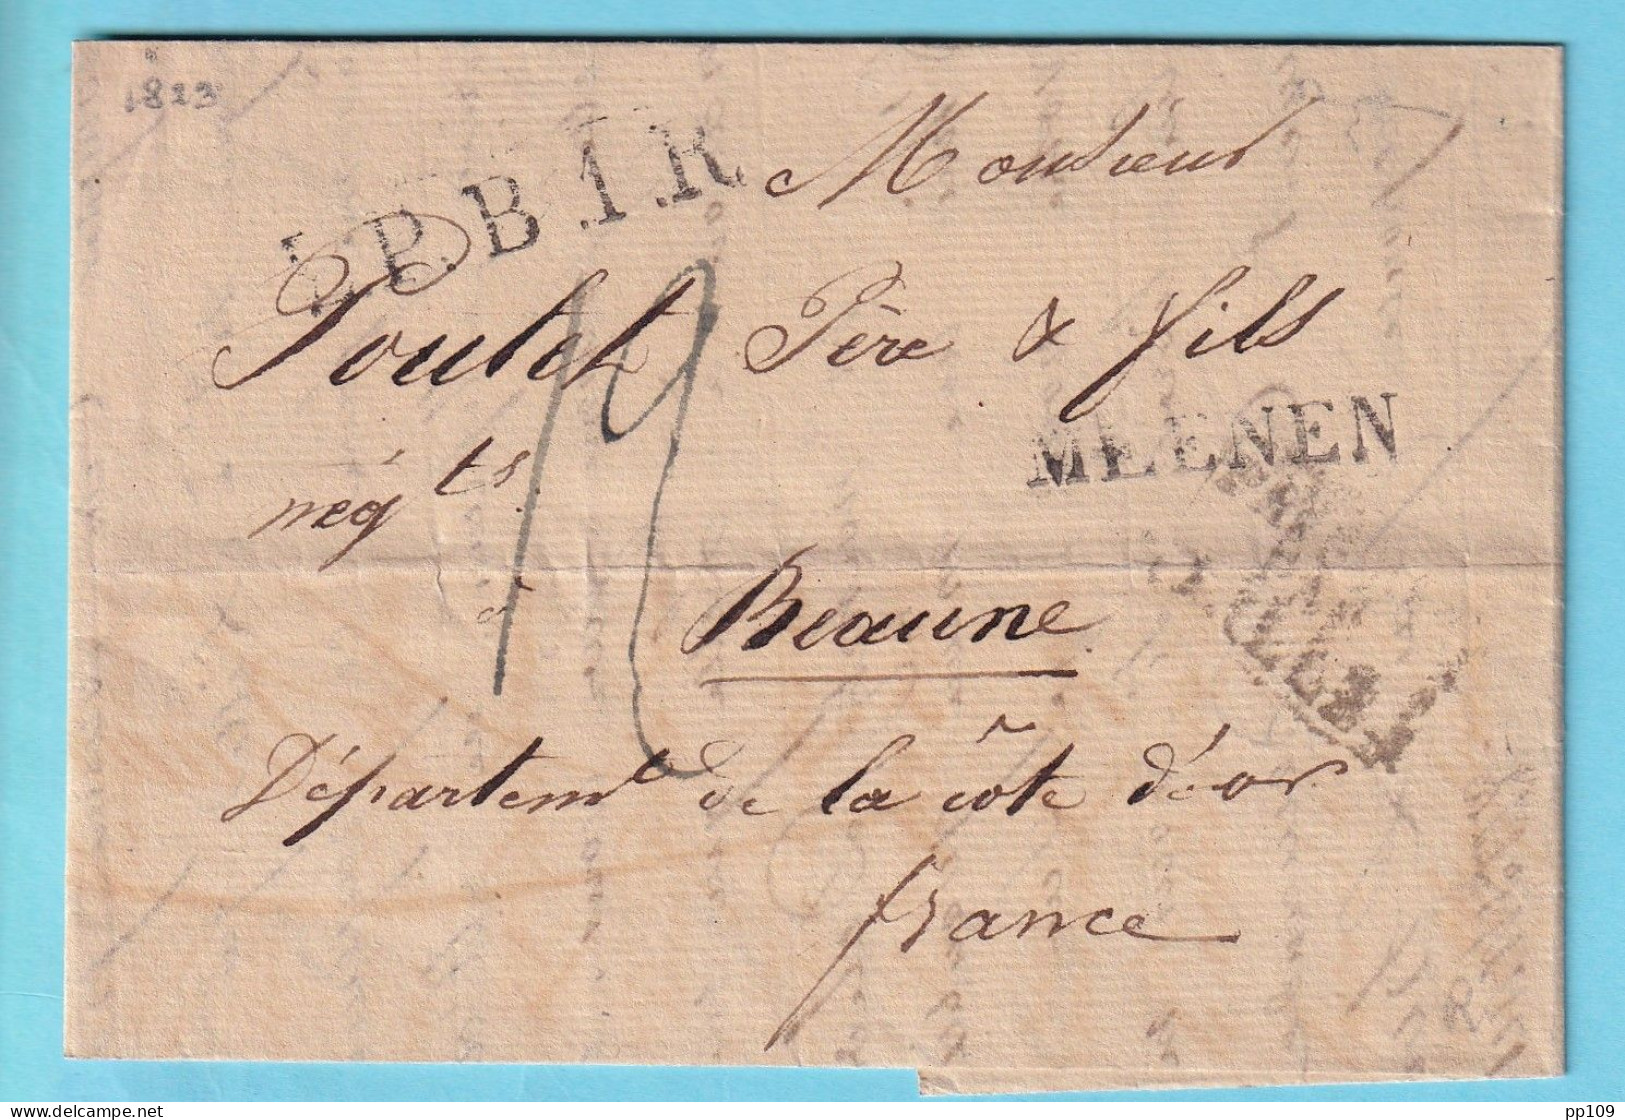 1823
L.P.B.1.R
Monsieur
Poulet Père & fils
MEENEN
négts
à Beaune
Départemt de la côte d'or
france
R
Delcampe.net
pp109